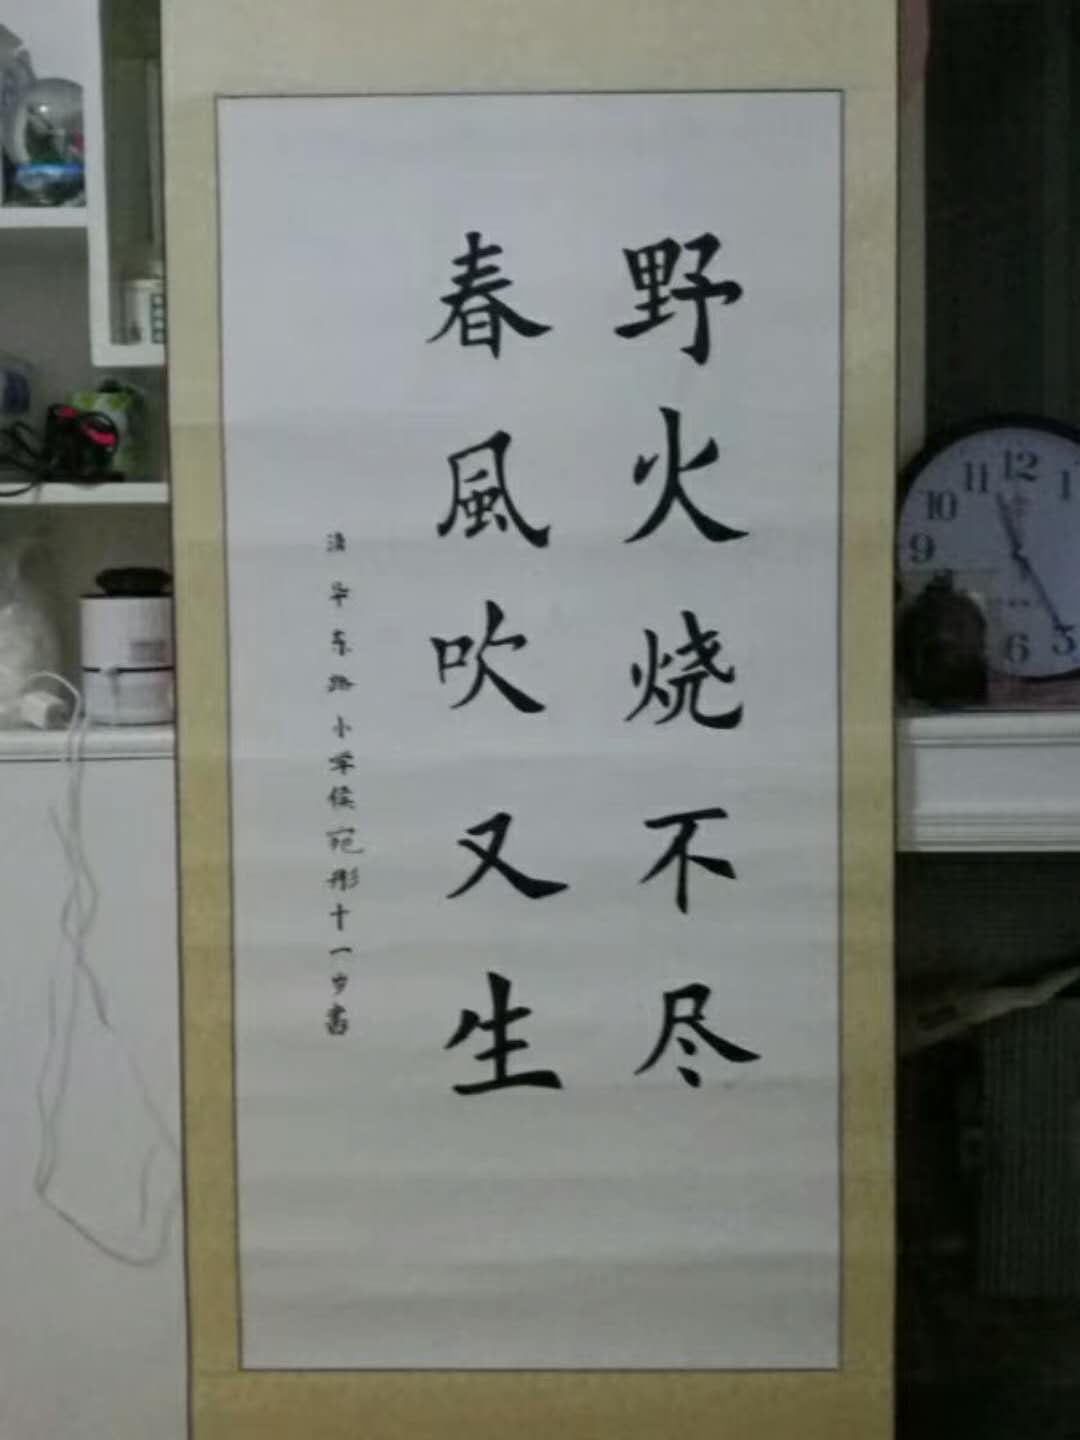 野火烧不尽
春風吹又生
清华东路小学侯宛彤十一岁書
12
1
11
10
9
6
5